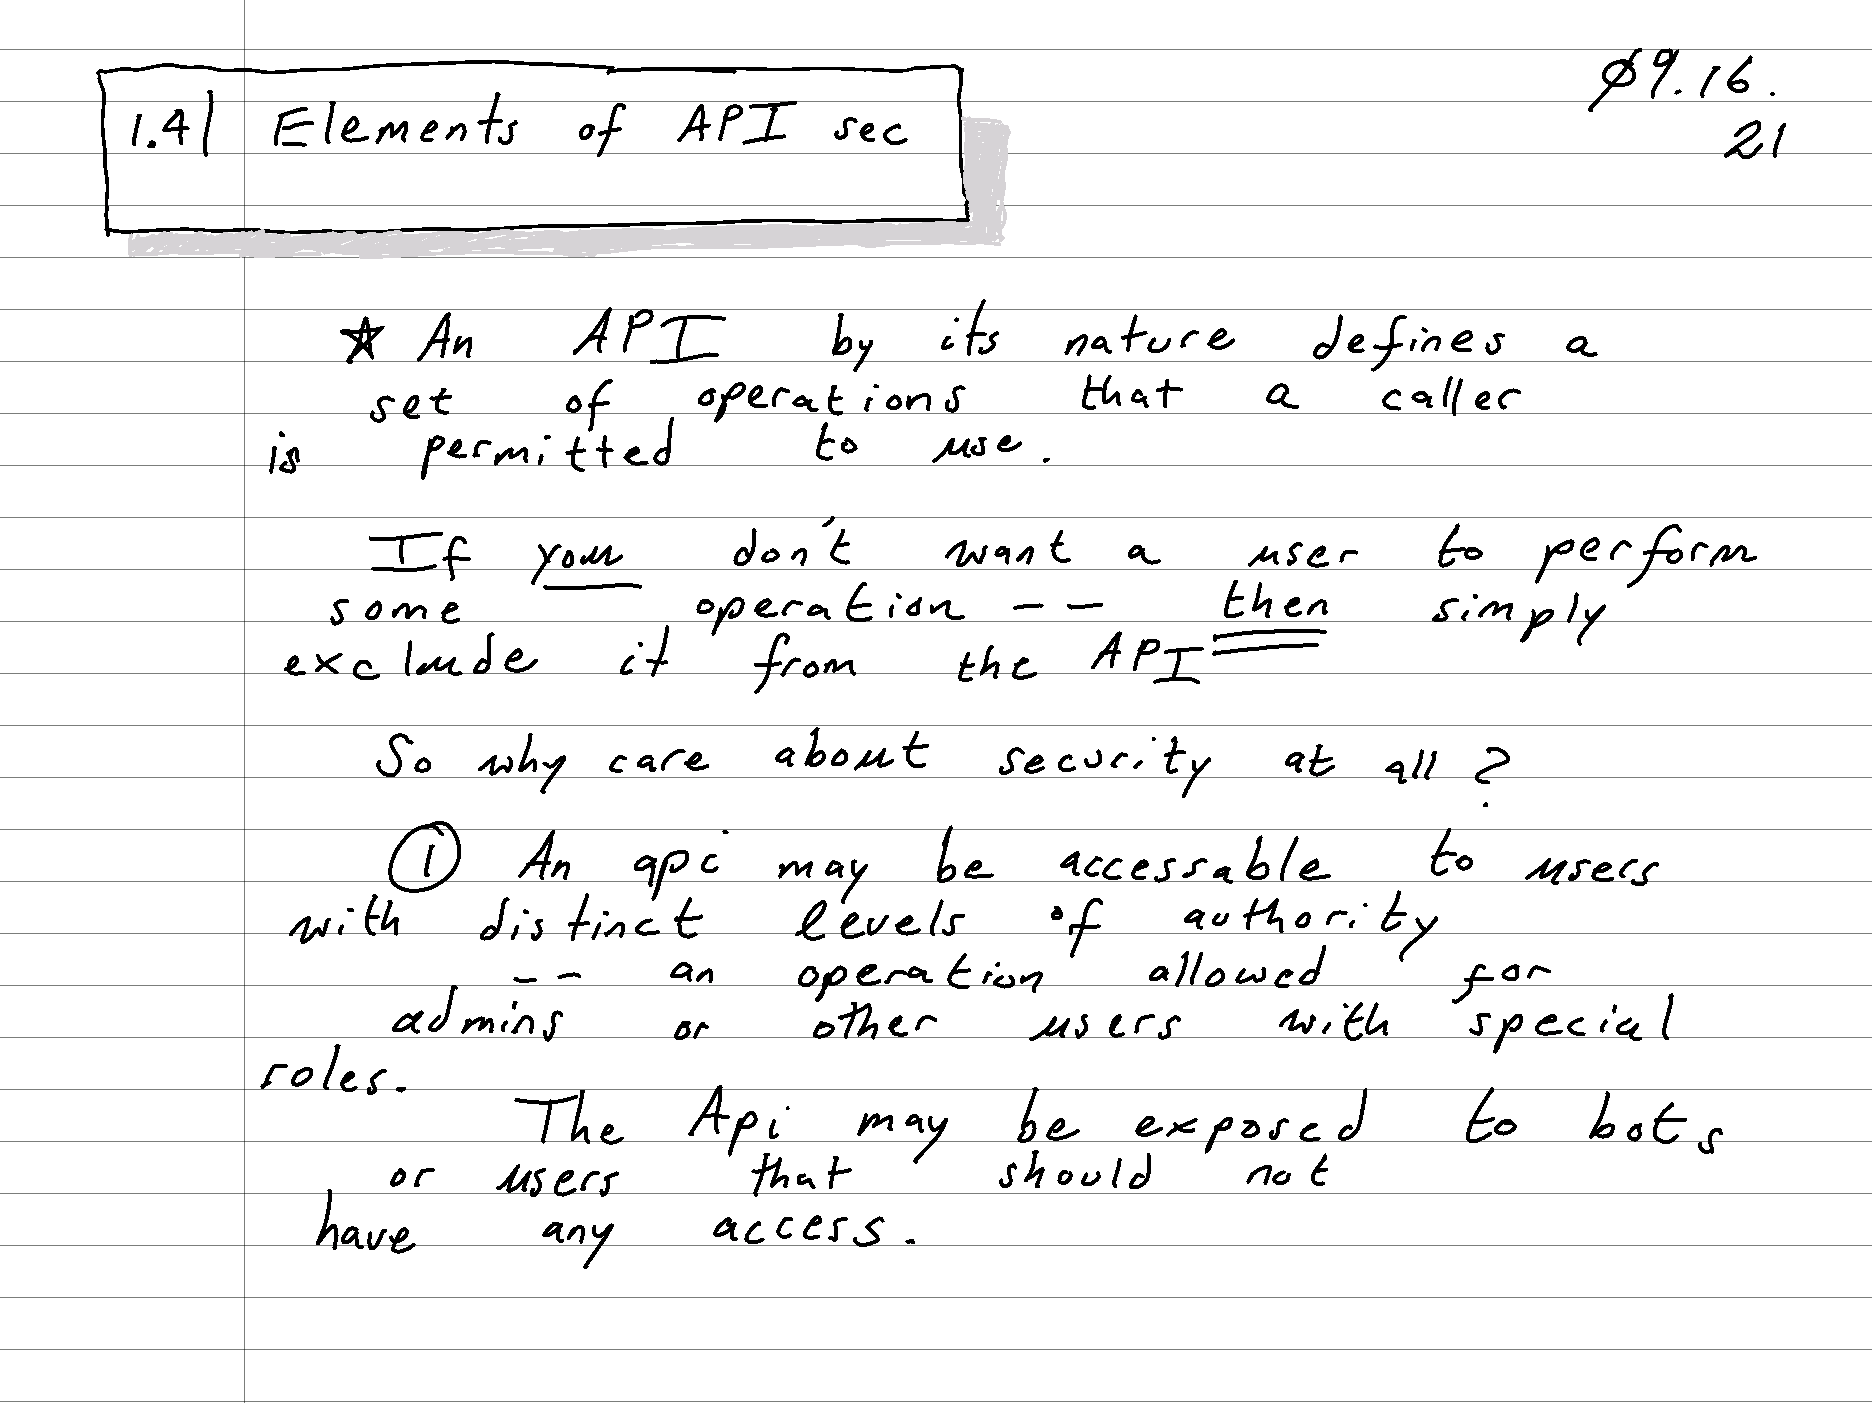 1.4| Elements of API sec
09.16.
21
☆ An API by its nature defines a
set of operations that a caller
is permitted to use.
If you don't want a user to perform
some operation -- then simply
exclude it from the API
So why care about security at all?
① An api may be accessable to users
with distinct levels of authority
-- an operation allowed for
admins or other users with special
roles.
The Api may be exposed to bots
or users that should not
have any access.